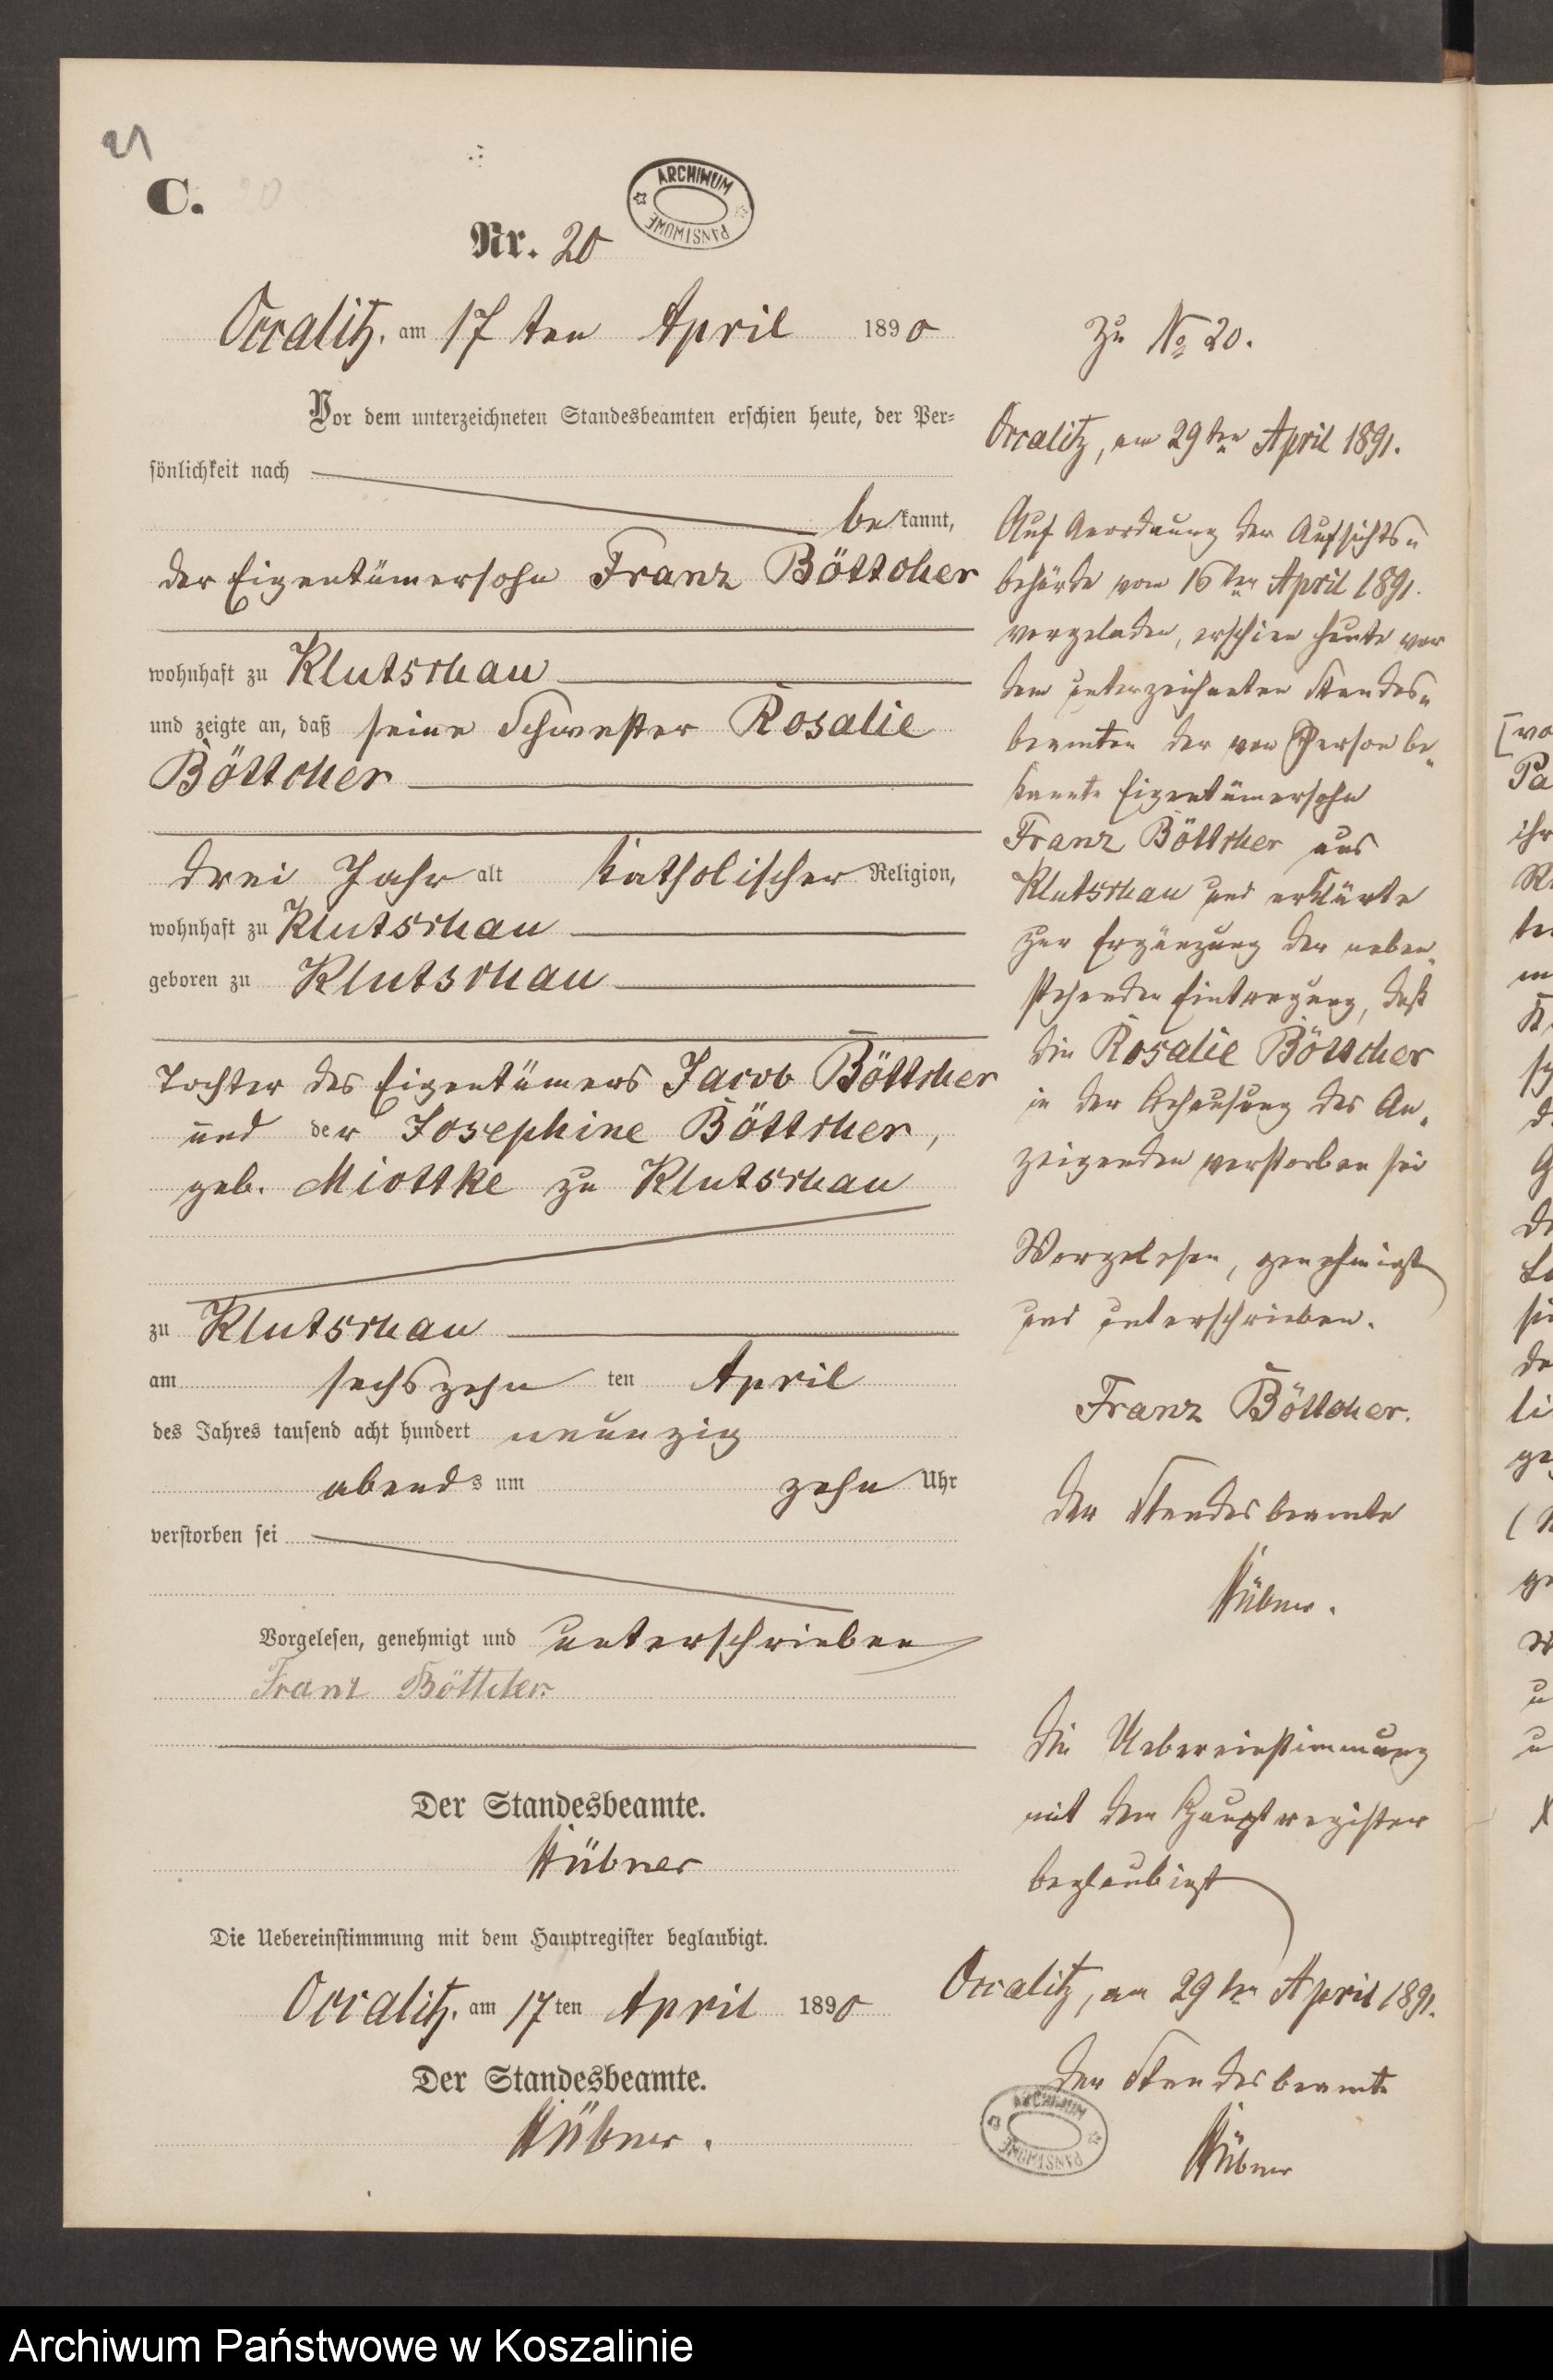 21
C. 20
ARCHIWUM PAŃSTWOWE
Nr. 20
Occalitz. am 17 ten April 1890
Vor dem unterzeichneten Standesbeamten erschien heute, der Per⸗
sönlichkeit nach
bekannt,
der Eigentümersohn Franz Böttcher
wohnhaft zu Klutschau
und zeigte an, daß seine Schwester Rosalie
Böttcher
drei Jahr alt katholischer Religion,
wohnhaft zu Klutschau
geboren zu Klutschau
Tochter des Eigentümers Jacob Böttcher
und der Josephine Böttcher,
geb. Miottke zu Klutschau
zu Klutschau
am sechszehn ten April
des Jahres tausend acht hundert neunzig
abends um zehn Uhr
verstorben sei
Vorgelesen, genehmigt und unterschrieben
Franz Böttcher
Der Standesbeamte.
Hübner
Die Uebereinstimmung mit dem Hauptregister beglaubigt.
Occalitz. am 17 ten April 1890
Der Standesbeamte.
Hübner.
Zu No 20.
Occalitz, am 29ten April 1891.
Auf Anordnung der Aufsichts⸗
behörde vom 16ten April 1891.
vorgeladen, erschien heute vor
dem unterzeichneten Standes⸗
beamten der von Person be⸗
kannte Eigentümersohn
Franz Böttcher aus
Klutschau und erklärte
zur Ergänzung der neben⸗
stehenden Eintragung, daß
die Rosalie Böttcher
in der Behausung des An⸗
zeigenden verstorben sei
Vorgelesen, genehmigt
und unterschrieben.
Franz Böttcher.
Der Standesbeamte
Hübner.
Die Uebereinstimmung
mit dem Hauptregister
beglaubigt
Occalitz, am 29ten April 1891.
Der Standesbeamte
Hübner
ARCHIWUM PAŃSTWOWE
Archiwum Państwowe w Koszalinie